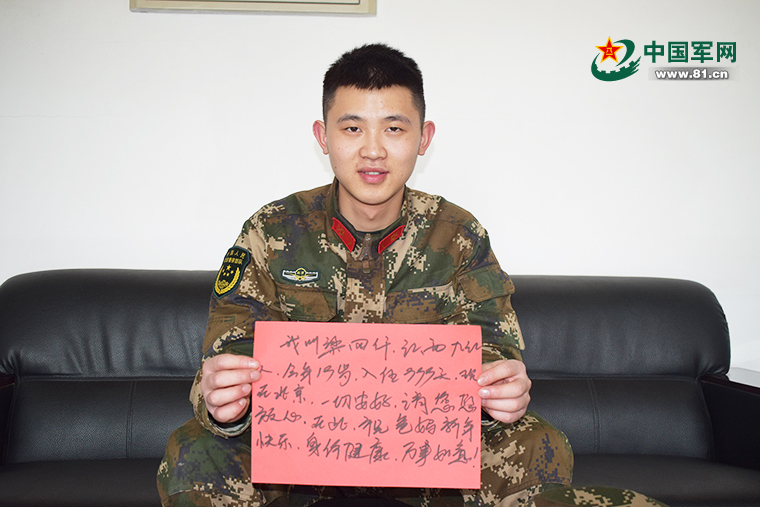 中国军网
www.81.cn
我叫梁四仟,江西九江
人,今年19岁,入伍999天,我
在北京,一切安好,请爸妈
放心,在此,祝爸妈新年
快乐,身体健康,万事如意!